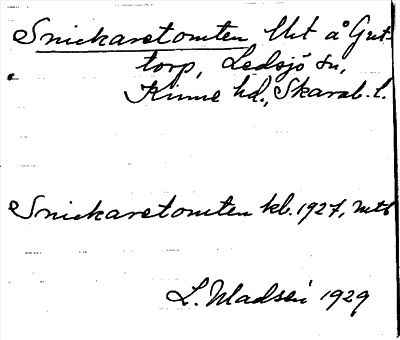 Snickaretomten Lht å Gut-
torp, Ledsjö sn,
Kinne hd., Skarab. l.
Snickaretomten kb. 1927, mtb
L. Madsén 1929